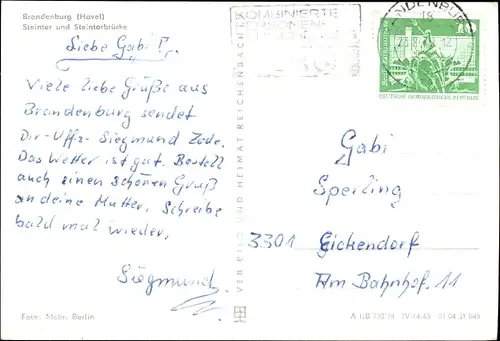 Brandenburg (Havel)
Steintor und Steintorbrücke
Liebe Gabi!
Viele liebe Grüße aus
Brandenburg sendet
Dir Uffz. Siegmund
Das Wetter ist gut. Bestell
auch einen schönen Gruß
an deine Mutter. Schreibe
bald mal wieder.
Siegmund
Foto: Mohr, Berlin
VEB BILD UND HEIMAT REICHENBACH
KOMBINIERTE
BRANDENBURG
18
DEUTSCHE DEMOKRATISCHE REPUBLIK
10
Gabi
Sperling
3301 Eickendorf
Am Bahnhof 11
IV-14-45 01 04 31 045